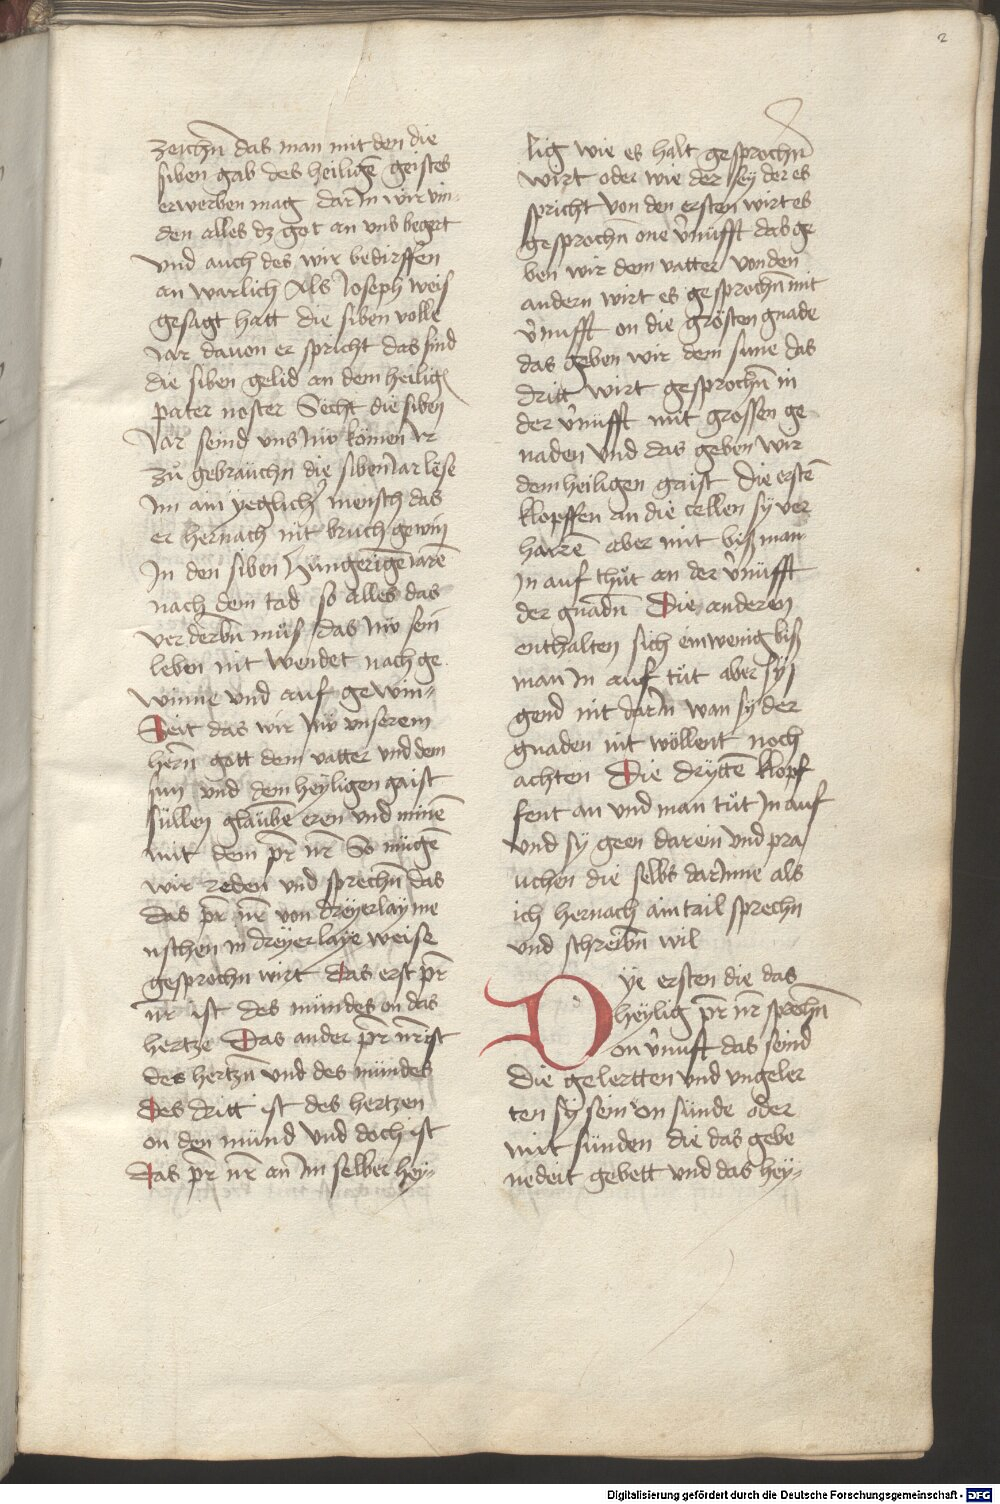 2
zeichn̄ das man mit den die
siben gab des heiligē geistes
erwerben mag darin̄ wir vin-
den alles dz got an vns begert
vnd auch des wir bedirffen
an warlich Als Joseph weis
gesagt hatt die siben volle
Jar dauon er spricht das sind
die siben gelid an dem heilig
pater noster Secht die siben
Jar seind vns nw̄ komen Ir
zů gebrauchn̄ die siben Jar lese
Im ain yeglich mensch das
er hernach nit bruch gewin
In den siben hungerigē iarē
nach dem tod so alles das
verderbn̄ můs das nw̄ sein
leben nit wendet nach ge
winne vnd auf gewin-
Seit das wir nw̄ vnserem
hern̄ gott dem vatter vnd dem
sun vnd dem heyligen gaist
süllen glaubē eren vnd minē
mit dem pr̄ nr̄ So mugē
wir reden vnd sprechn̄ das
das pr̄ nr̄ von dreyerlay me
nschen in dreyerlaye weise
gesprochn wirt Das erst pr̄
nr̄ ist des mundes on das
hertze Das ander pr̄ nr̄ ist
des hertzn̄ vnd des mundes
Des dritt ist des hertzen
on den mund vnd doch ist
das pr̄ nr̄ an Im selber hey-
lig wie es halt gesprochn̄
wirt oder wie der sey der es
spricht von den ersten wirt es
gesprochn̄ one v̄nufft das ge
ben wir dem vatter von den
andern wirt es gesprochn̄ mit
v̄nufft on die grösten gnade
das geben wir dem sune das
dritt wirt gesprochn̄ in
der v̄nufft mit grossen ge
naden vnd das geben wir
dem heiligen gaist Die erstē
klopffen an die cellen sy ver
harrē aber nit biß man
In auf thůt an der v̄nufft
der gnadn̄ Die anderen
enthalten sich ein wenig biß
man In auf tůt aber sy
gend nit darin̄ wan sy der
gnaden nit wöllent noch
achten Die dryttē klopf
fent an vnd man tůt In auf
vnd sy geen darein vnd pra
uchen die selbs darinne als
ich hernach ain tail sprechn
vnd schreibn̄ wil
Dye ersten die das
heylig pr̄ nr̄ sprechn̄
on v̄nuft das seind
die gelertten vnd vngeler
ten sy sein on sünde oder
mit sünden die das gebe
nedeit gebett vnd das hey-
Digitalisierung gefördert durch die Deutsche Forschungsgemeinschaft - DFG